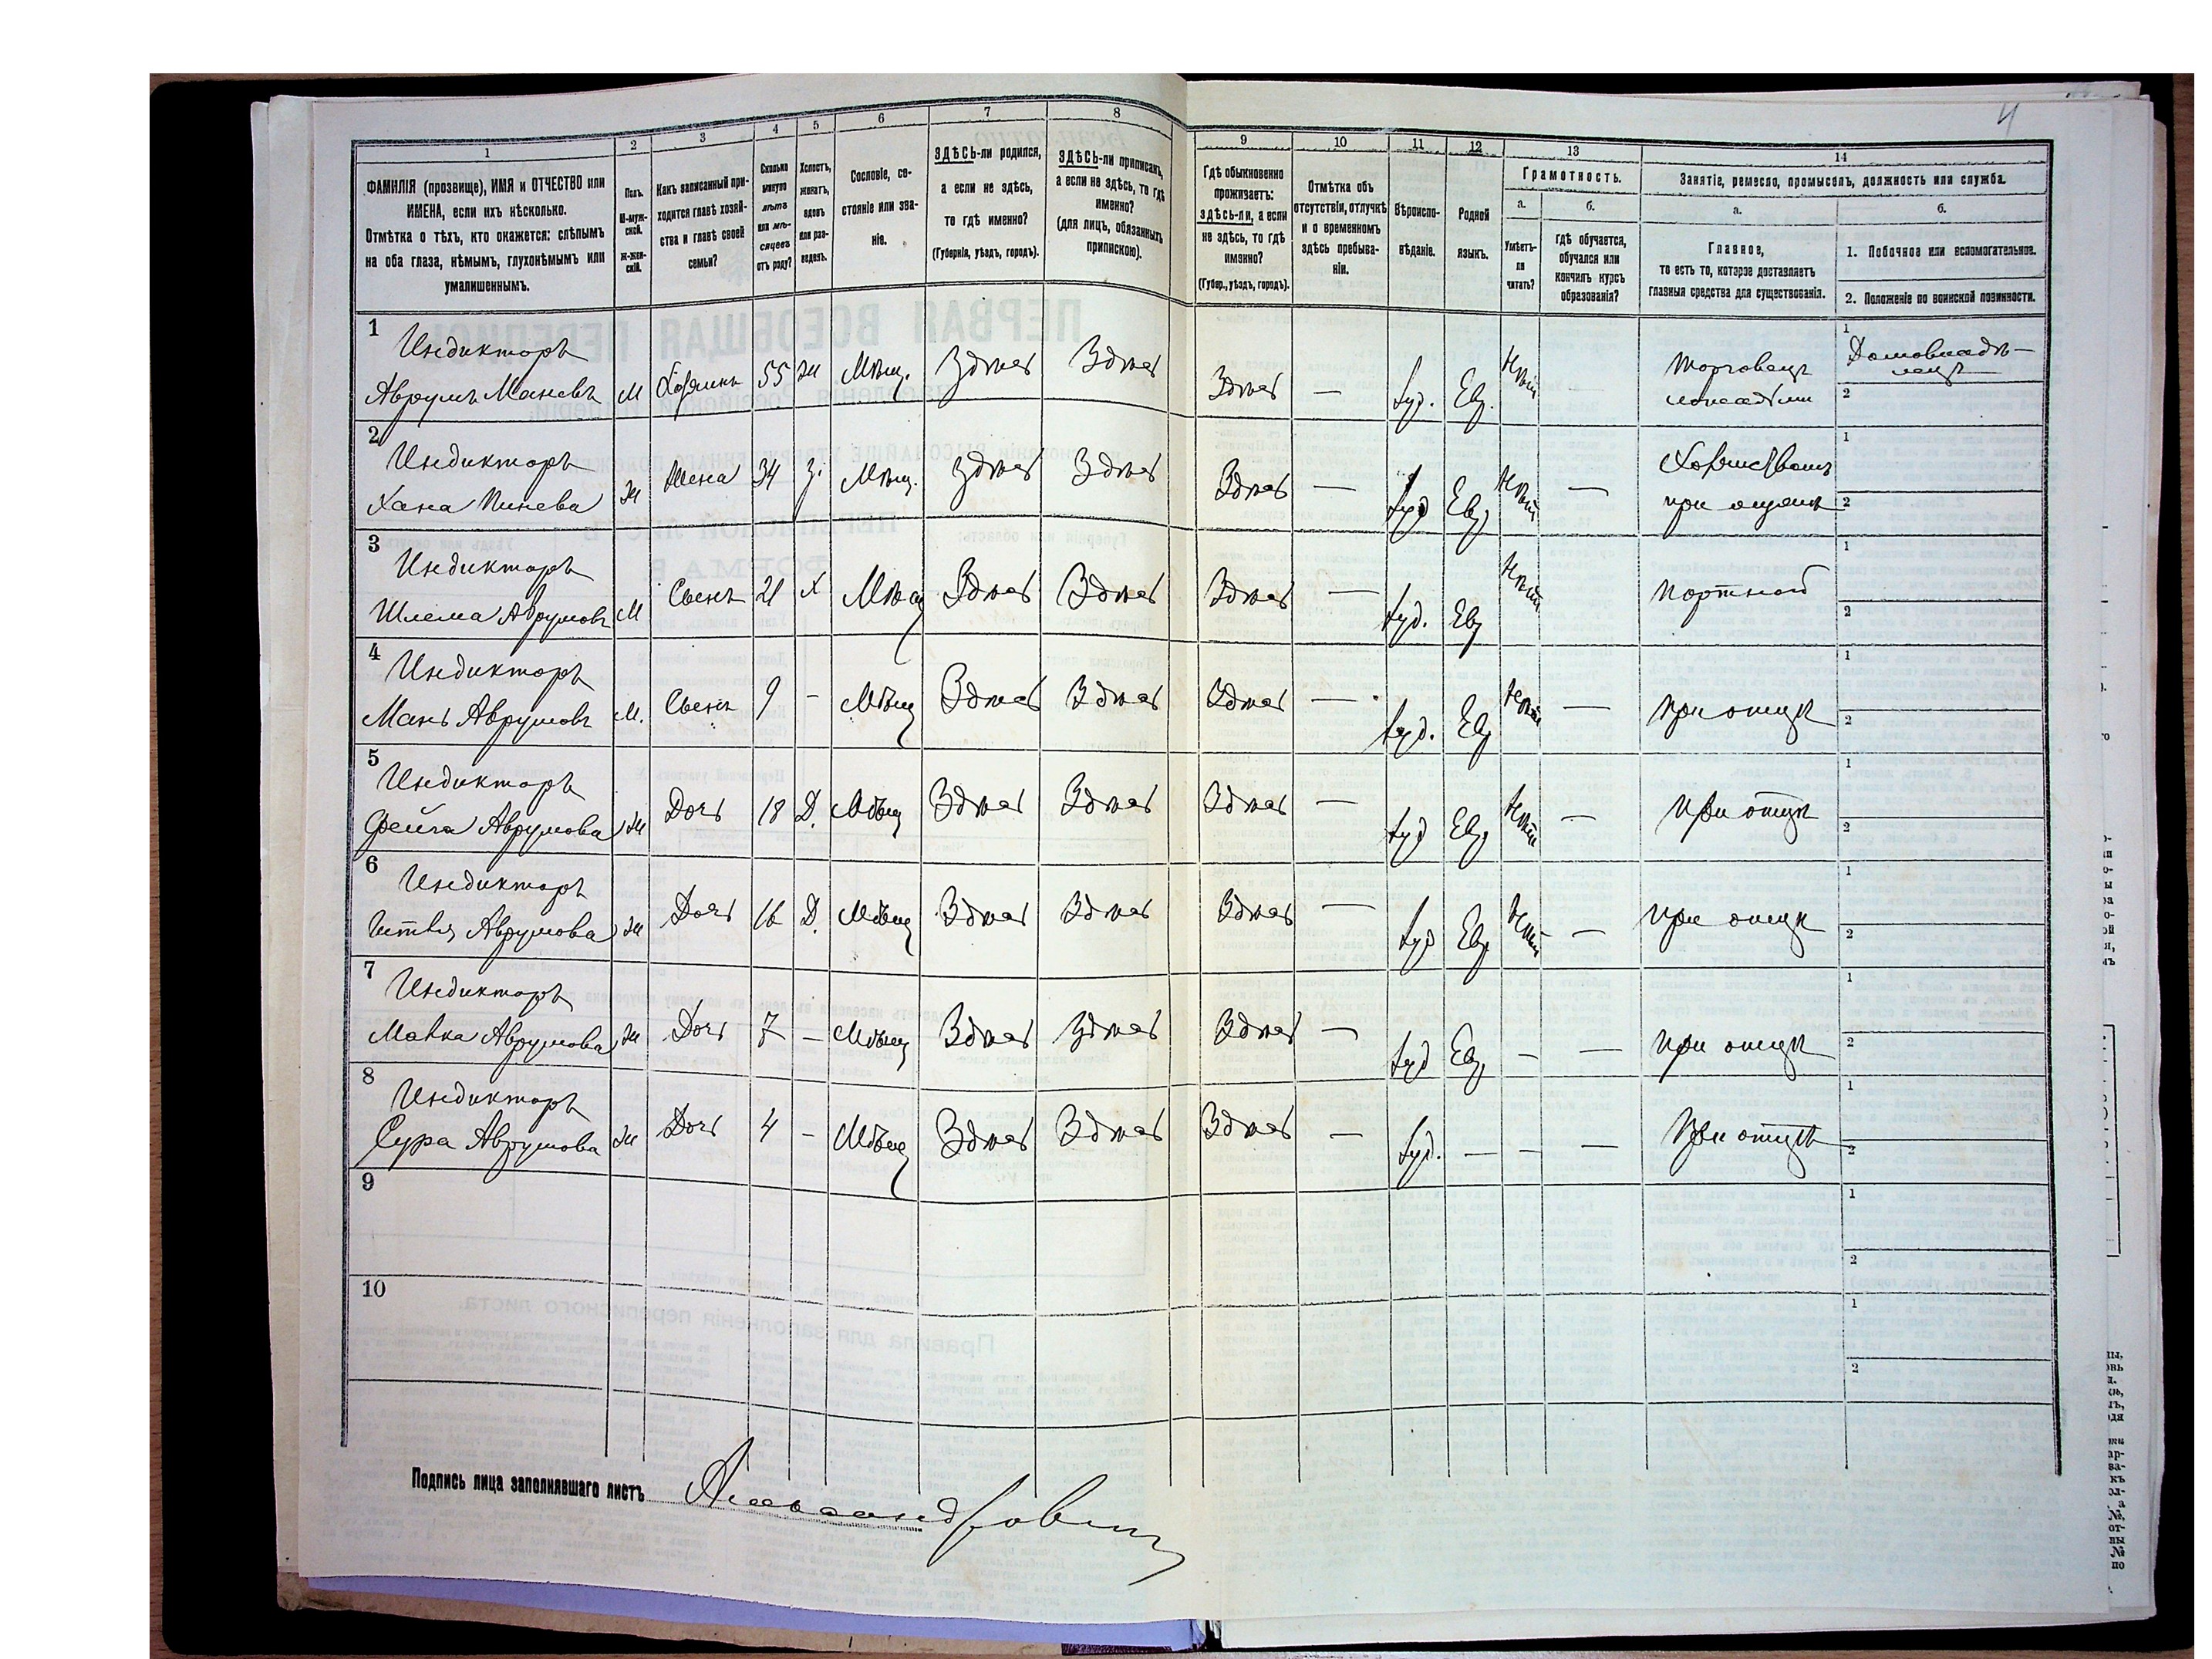 4
1 2 3 4 5 6 7 8 9 10 11 12 13 14
ФАМИЛІЯ (прозвище), ИМЯ и ОТЧЕСТВО или
ИМЕНА, если ихъ нѣсколько.
Отмѣтка о тѣхъ, кто окажется: слѣпымъ
на оба глаза, нѣмымъ, глухонѣмымъ или
умалишеннымъ.
Полъ.
М-муж-
ской.
Ж-жен-
скій.
Какъ записанный при-
ходится главѣ хозяй-
ства и главѣ своей
семьи?
Сколько
минуло
лѣтъ
или мѣ-
сяцевъ
отъ роду?
Холостъ,
женатъ,
вдовъ
или раз-
веденъ.
Сословіе, со-
стояніе или зва-
ніе.
ЗДѢСЬ-ли родился,
а если не здѣсь,
то гдѣ именно?
(Губернія, уѣздъ, городъ).
ЗДѢСЬ-ли приписанъ,
а если не здѣсь, то гдѣ
именно?
(для лицъ, обязанныхъ
припискою).
Гдѣ обыкновенно
проживаетъ:
здѣсь-ли, а если
не здѣсь, то гдѣ
именно?
(Губер., уѣздъ, городъ).
Отмѣтка объ
отсутствіи, отлучкѣ
и о временномъ
здѣсь пребыва-
ніи.
Вѣроиспо-
вѣданіе.
Родной
языкъ.
Грамотность.
а.
Умѣетъ-
ли
читать?
б.
гдѣ обучается,
обучался или
кончилъ курсъ
образованія?
Занятіе, ремесло, промыселъ, должность или служба.
а.
Главное,
то есть то, которое доставляетъ
главныя средства для существованія.
б.
1. Побочное или вспомогательное.
2. Положеніе по воинской повинности.
1 Индикторъ
Аврумъ Маневъ М Хозяинъ 55 Ж Мѣщ. Здѣсь Здѣсь Здѣсь — Іуд. Евр. Нѣтъ Торговецъ лошадьми 1 Домовладѣ-
лецъ
2
2 Индикторъ
Хана Пинева Ж Жена 34 З. Мѣщ. Здѣсь Здѣсь Здѣсь — Іуд Евр Нѣтъ — Хозяйствомъ 1
при 2
3 Индикторъ
Шлема Аврумовъ М Сынъ 21 Х Мѣщ Здѣсь Здѣсь Здѣсь — Іуд. Евр Нѣтъ Портной 1
2
4 Индикторъ
Мань Аврумовъ М. Сынъ 9 - Мѣщ Здѣсь Здѣсь Здѣсь — Іуд. Евр Нѣтъ — При отцѣ 1
2
5 Индикторъ
Фейга Аврумова Ж Дочь 18 Д. Мѣщ Здѣсь Здѣсь Здѣсь — Іуд Евр Нѣтъ — При отцѣ 1
2
6 Индикторъ
Аврумова Ж Дочь 16 Д. Мѣщ Здѣсь Здѣсь Здѣсь — Іуд Евр Нѣтъ — При отцѣ 1
2
7 Индикторъ
Малка Аврумова Ж Дочь 7 - Мѣщ Здѣсь Здѣсь Здѣсь — Іуд Евр — — При отцѣ 1
2
8 Индикторъ
Сура Аврумова Ж Дочь 4 - Мѣщ Здѣсь Здѣсь Здѣсь — Іуд. — — — При отцѣ 1
2
9 1
2
10 1
2
Подпись лица заполнявшаго листъ